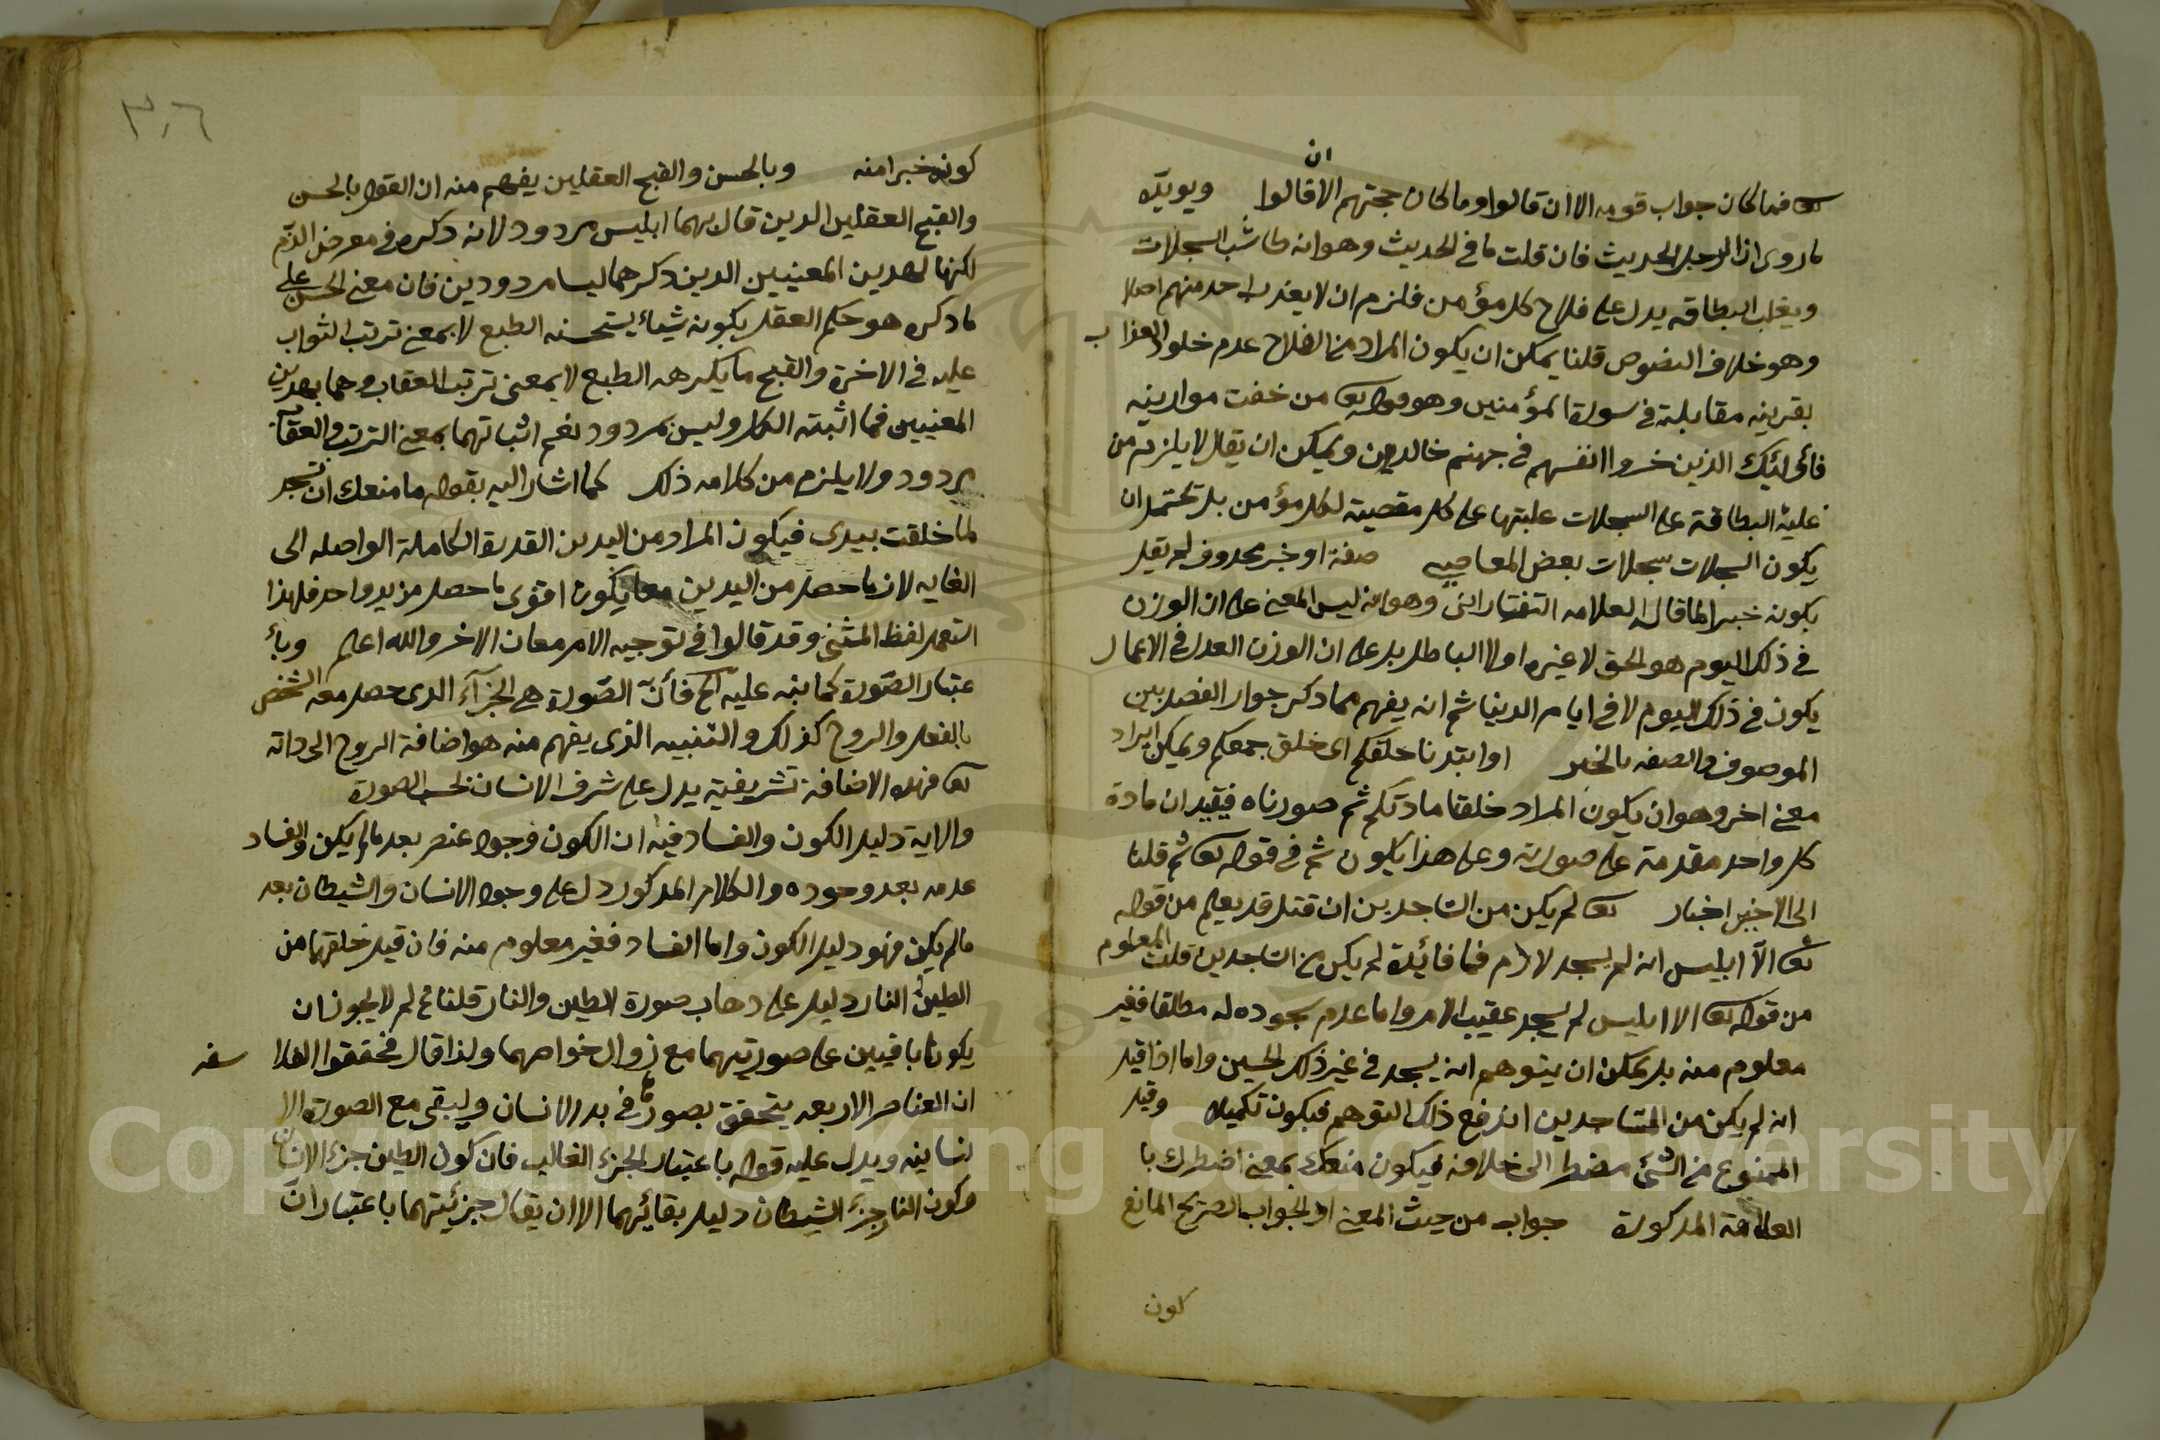 تع فما كان جواب قومه الا ان قالوا وما كان حجتهم الا ان قالوا ويويده
ما روى ان الرجل الحديث فان قلت ما في الحديث وهو انه طاشت السجلات
ويغلب البطاقة يدل على فلاح كل مؤمن فلزم ان لا يعذب احد منهم اصلا
وهو خلاف النصوص قلنا يمكن ان يكون المراد من الفلاح عدم خلود العذاب
بقرينه مقابلة في سورة المؤمنين وهو قوله تع من خفت موازينه
فاولئك الذين خسروا انفسهم في جهنم خالدون ويمكن ان يقال لا يلزم من
غلبة البطاقة على السجلات غلبتها على كل معصية لكل مؤمن بل يحتمل ان
يكون السجلات سجلات بعض المعاصي صفة او خبر محذوف لم يقل
بكونه خبرا لما قال العلامه التفتازاني وهو انه ليس المعنى على ان الوزن
في ذلك اليوم هو الحق لا غيره او لا الباطل بل على ان الوزن العدل في الاعمال
يكون في ذلك اليوم لا في ايام الدنيا ثم انه يفهم مما ذكر جواز الفصل بين
الموصوف والصفه بالخبر او ابتدنا خلقكم اى خلق جمعكم ويمكن ايراد
معنى اخر وهو ان يكون المراد خلقنا مادتكم ثم صورناه فيفيد ان مادة
كل واحد مقدمة على صورته وعلى هذا يكون ثم في قوله تع ثم قلنا
الى الاخير اخبار تع لم يكن من الساجدين ان قتل قد يعلم من قوله
تع الا ابليس انه لم يسجد لادم فما فائدة لم يكن من الساجدين قلت المعلوم
من قوله تع الا ابليس لم يسجد عقيب الامر واما عدم سجوده له مطلقا فغير
معلوم منه بل يمكن ان يتوهم انه يسجد في غير ذلك الحين واما اذا قيل
انه لم يكن من الساجدين اندفع ذلك التوهم فيكون تكميلا وقيل
الممنوع من الشئ مضطر الى خلافه فيكون منعك بمعنى اضطرك با
العلاقة المذكورة جواب من حيث المعنى اذ الجواب الصريح المانع
كون
٣٠٦
كونه خيرا منه وبالحسن والقبح العقليين يفهم منه ان القول بالحسن
والقبح العقليين الذين قال بهما ابليس مردود لانه ذكره في معرض الذم
لكنها لهذين المعنيين الذين ذكرهما ليسا مردودين فان معنى الحسن على
ما ذكره هو حكم العقل بكونه شياء يستحسنه الطبع لا بمعنى ترتب الثواب
عليه في الاخرة والقبح ما يكرهه الطبع لا بمعنى ترتب العقاب وهما بهذين
المعنيين فما اثبته الكل وليس بمردود نعم اثباتهما بمعنى الترتب والعقاب
مردود ولا يلزم من كلامه ذلك كما اشار اليه بقوله ما منعك ان تسجد
لما خلقت بيدى فيكون المراد من اليدين القدرة الكاملة الواصله الى
الغايه لان ما حصل من اليدين معا يكون اقوى ما حصل من يد واحد فلهذا
استعمل لفظ المثنى وقد قالوا في توجيه الامر معان الاخر والله اعلم وبا
عتبار الصورة كما نبه عليه الخ فان الصورة هي الجزء الذى حصل معه الشخص
بالفعل والروح كذلك والتنبيه الذى يفهم منه هو اضافة الروح الى ذاته
تع فهذه الاضافة تشريفية يدل على شرف الانسان بحسب الصورة
والاية دليل الكون والفساد فيه ان الكون وجود عنصر بعد ما لم يكن والفساد
عدمه بعد وجوده والكلام المذكور دل على وجود الانسان والشيطان بعد
ما لم يكن فهو دليل الكون واما الفساد فغير معلوم منه فان قيل خلقهما من
الطين والنار دليل على ذهاب صورة الطين والنار قلنا لم لا يجوز ان
يكونا باقيين على صورتيهما مع زوال خواصهما ولذا قال محققوا الفلا سفه
ان العناصر الاربعه يتحقق بصورها في بدن الانسان ويبقى مع الصورة الا
نسانيه ويدل عليه قوله باعتبار الجزء الغالب فان كون الطين جزء الانسان
وكون النار جزء الشيطان دليل بقائهما الا ان يقال جزئيتهما باعتبار ان
Copyright © King Saud University